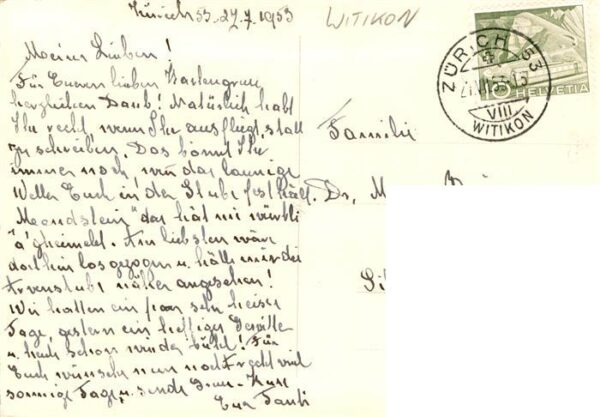 Zürich 53. 27.7.1953
WITIKON
Meine Lieben!
Für Euren lieben Kartengruss
herzlichen Dank! Natürlich habt
Ihr recht, wenn Ihr ausfliegt, statt
zu schreiben. Das könnt Ihr
immer noch, wenn das launige
Wetter Euch in der Stube festhält.
"Meondstein" das hät mi würkli
"a'gheimelet. Am liebsten wär
doch hin losgezogen u. hätte mir die
Arvenstube näher angesehen!
Wir hatten ein paar sehr heisse
Tage, gestern ein heftiges Gewitter
u. heute schon wieder kühl! Für
Euch wünsche nun noch recht viel
sonnige Tage u. sende Gruss
Familie
Dr. M
ZÜRICH 53
VIII
WITIKON
HELVETIA